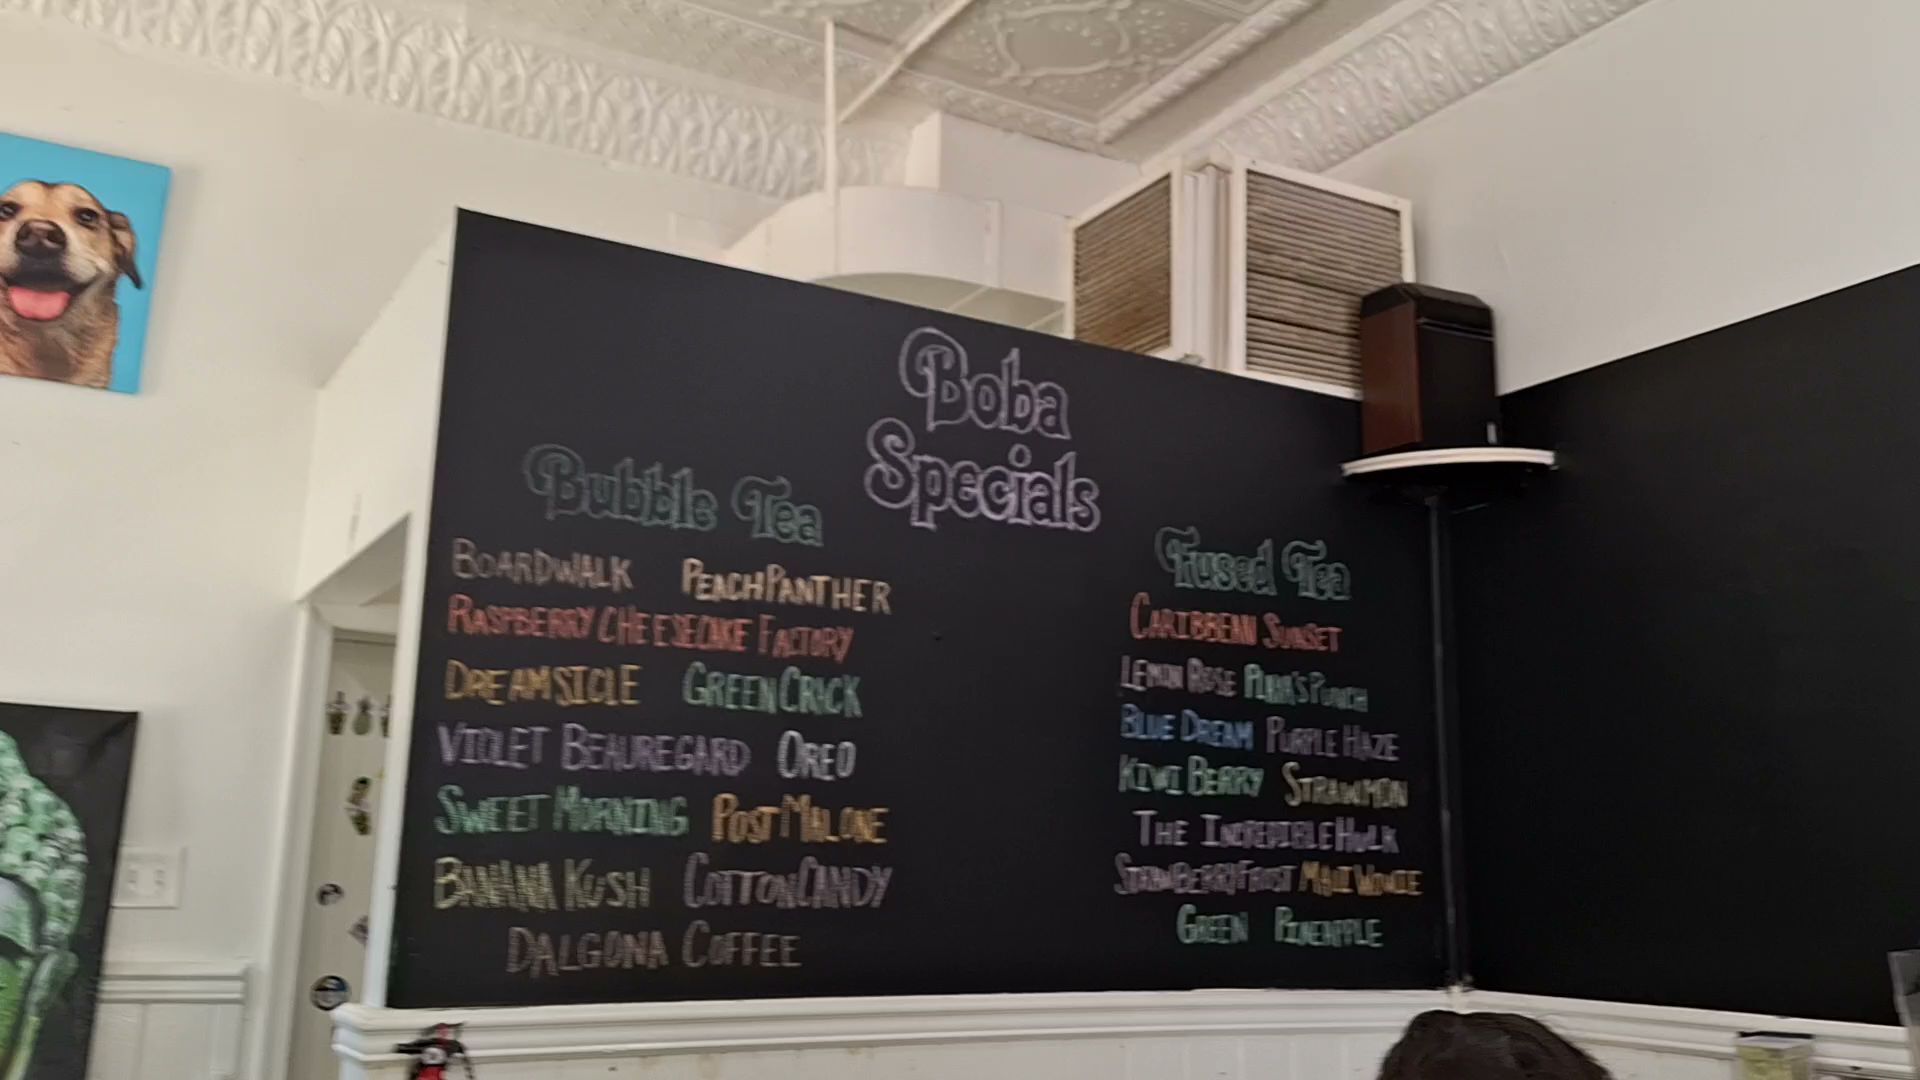 Boba
Specials
Bubble Tea
BOARDWALK PEACH PANTHER
RASPBERRY CHEESECAKE FACTORY
DREAMSICLE GREEN CRACK
VIOLET BEAUREGARD OREO
SWEET MORNING POST MALONE
BANANA KUSH COTTON CANDY
DALGONA COFFEE
Fused Tea
CARIBBEAN SUNSET
LEMON ROSE PUNCH
BLUE DREAM PURPLE HAZE
KIWI BERRY STRAWMON
THE INCREDIBLE HULK
STRAWBERRY FROST MAUI WOWIE
GREEN PINEAPPLE